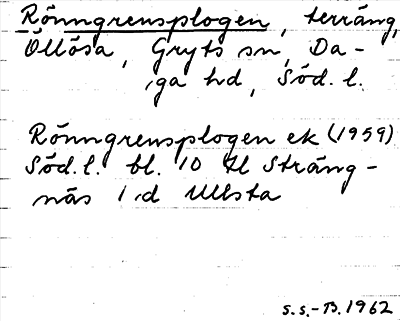 Rönngrensplogen, terräng,
Öllösa, Gryts sn, Da-
ga hd, Söd. l.
Rönngrensplogen ek (1959)
Söd. l. bl. 10 H Sträng-
näs 1 d Ullsta
S.S.-B. 1962